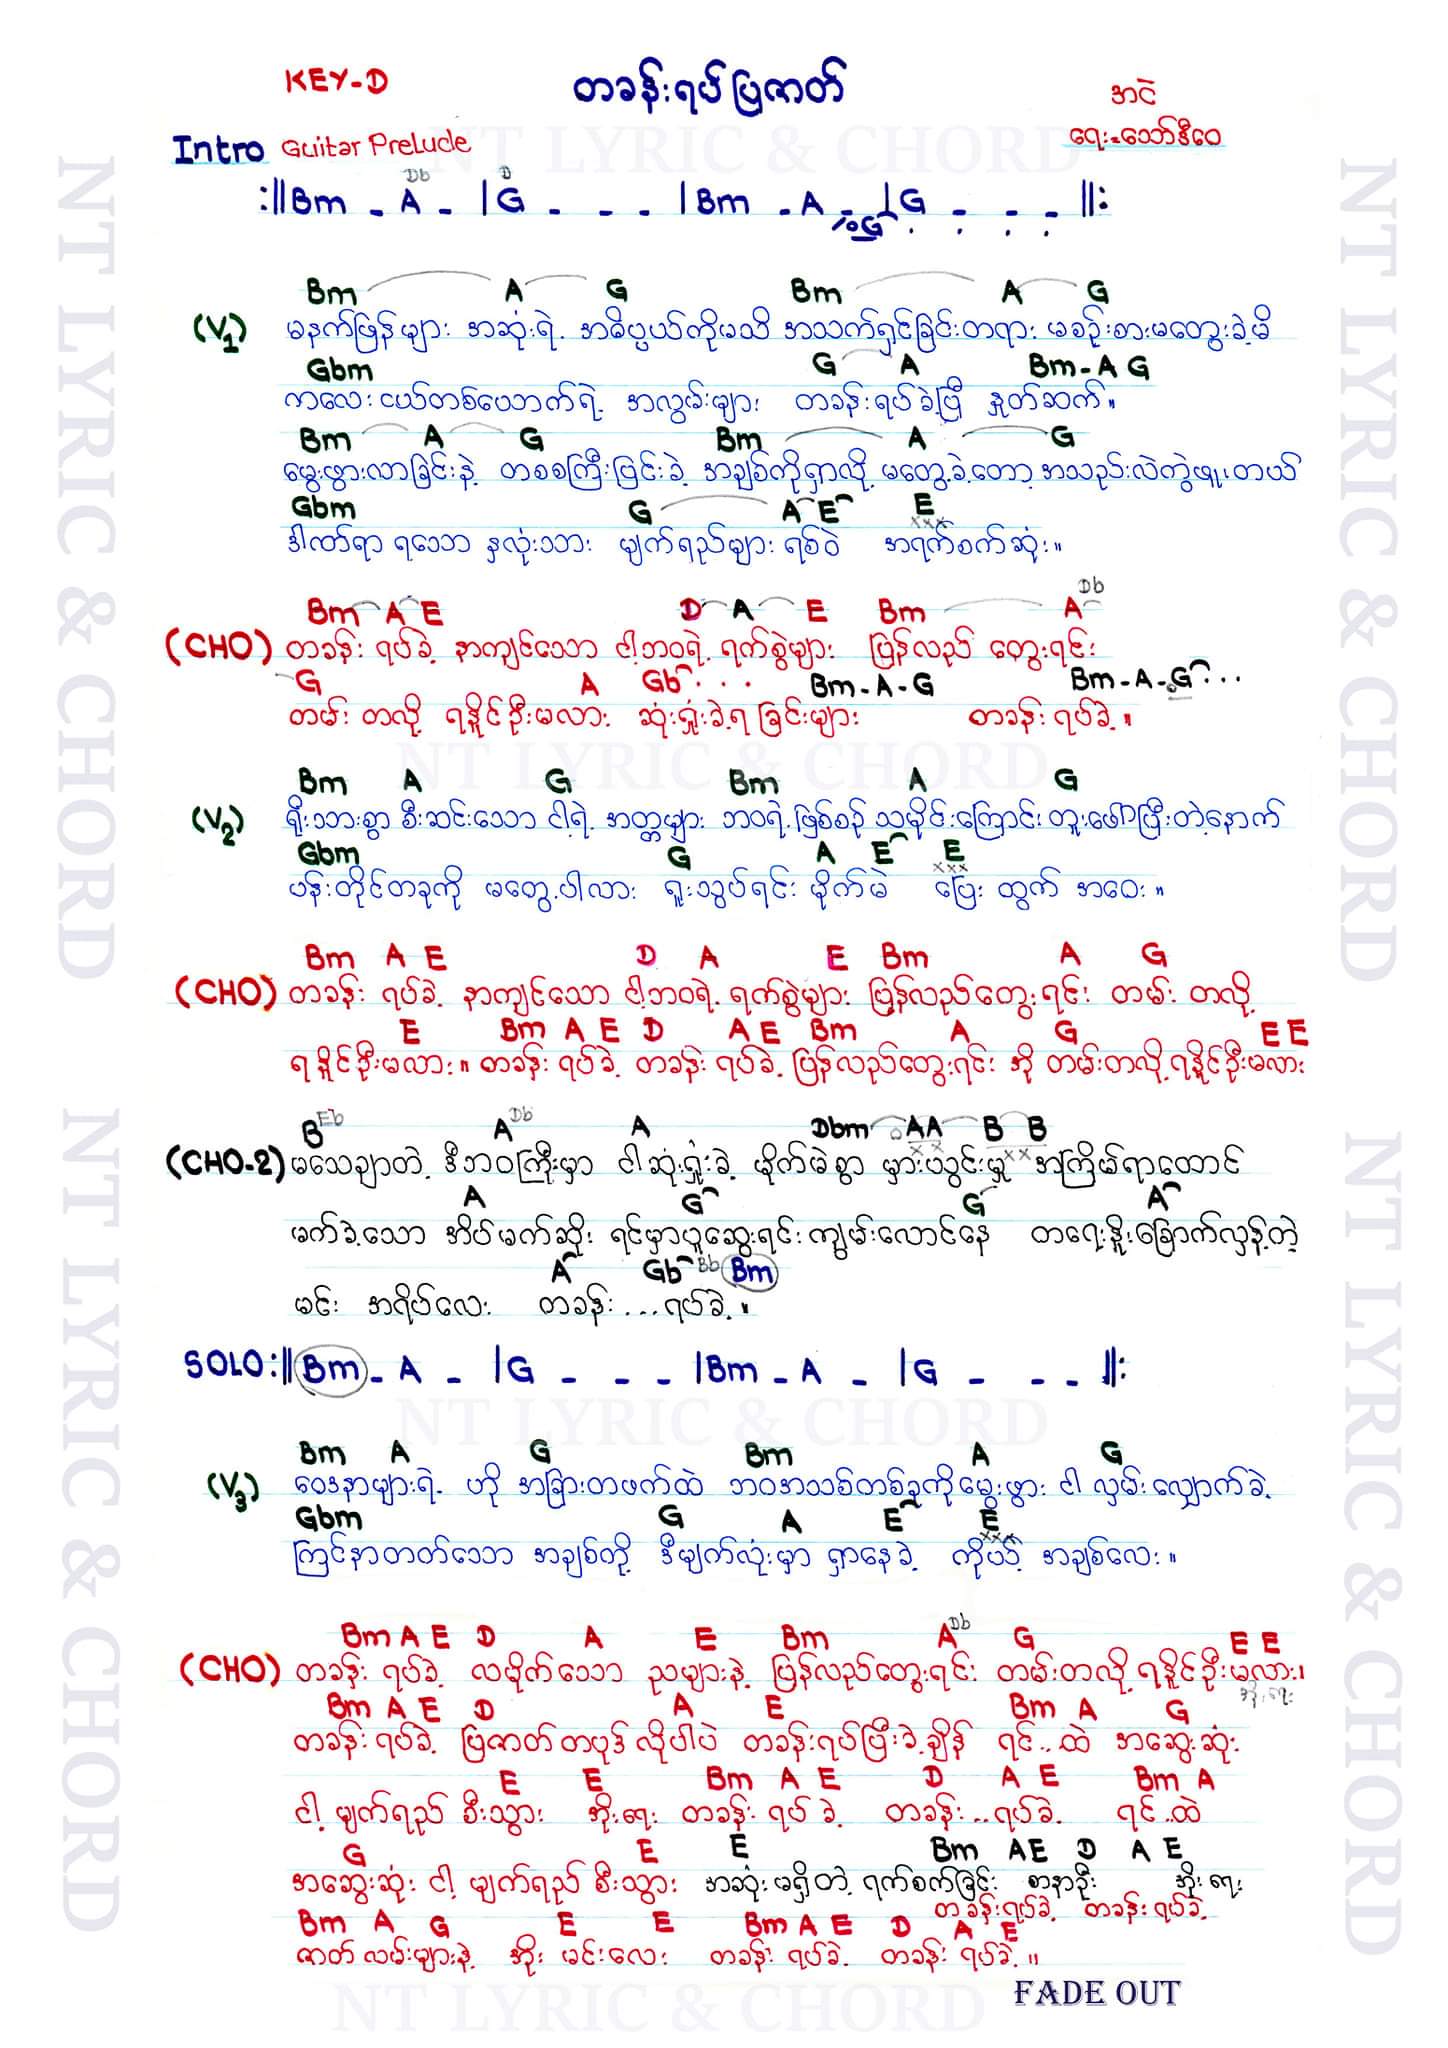 KEY-D
တခန်းရပ်ပြဇာတ်
အငဲ
ရေး-သော်ဒီဝေ
Intro Guitar Prelude
Db D
:||Bm - A - |G - - - |Bm - A - |G - - - ||:
%G . . . .
Bm A G Bm A G
(V1) မနက်ဖြန်များ အဆုံးရဲ့ အဓိပ္ပယ်ကိုမသိ အသက်ရှင်ခြင်းတရား မစဉ်းစားမတွေးခဲ့မိ
Gbm G A Bm-A G
ကလေးငယ်တစ်ယောက်ရဲ့ အလွမ်းများ တခန်းရပ်ခဲ့ပြီ နှုတ်ဆက်။
Bm A G Bm A G
မွေးဖွားလာခြင်းနဲ့ တစစကြီးပြင်းခဲ့ အချစ်ကိုရှာလို့ မတွေ့ခဲ့တော့ အသည်းလဲကွဲဖူးတယ်
Gbm G A E E
xxx
ဒါဏ်ရာ ရသော နှလုံးသား မျက်ရည်များ ရစ်ဝဲ အရက်စက်ဆုံး။
Db
Bm A E D A E Bm A
(CHO) တခန်း ရပ်ခဲ့ နာကျင်သော ငါ့ဘဝရဲ့ ရက်စွဲများ ပြန်လည် တွေးရင်း
G A Gb . . . Bm-A-G Bm-A-G...
တမ်းတလို့ ရနိုင်ဦးမလား ဆုံးရှုံးခဲ့ရခြင်းများ တခန်းရပ်ခဲ့။
Bm A G Bm A G
(V2) ရိုးသားစွာ စီးဆင်းသော ငါ့ရဲ့ အတ္တများ ဘဝရဲ့ဖြစ်စဉ် သမိုင်းကြောင်း တူးဖေါ်ပြီးတဲ့နောက်
Gbm G A E E
xxx
ပန်းတိုင်တခုကို မတွေ့ပါလား ရူးသွပ်ရင်း မိုက်မဲ ပြေးထွက် အဝေး။
Bm A E D A E Bm A G
(CHO) တခန်း ရပ်ခဲ့ နာကျင်သော ငါ့ဘဝရဲ့ ရက်စွဲများ ပြန်လည်တွေးရင်း တမ်းတလို့
E Bm A E D A E Bm A G E E
ရနိုင်ဦးမလား။ တခန်းရပ်ခဲ့ တခန်းရပ်ခဲ့ ပြန်လည်တွေးရင်း အို တမ်းတလို့ရနိုင်ဦးမလား
B Eb A Db A Dbm AA B B
(CHO-2) မသေချာတဲ့ ဒီဘဝကြီးမှာ ငါဆုံးရှုံးခဲ့ မိုက်မဲစွာ မှားယွင်းမှု အကြိမ်ရာထောင်
A G G A
မက်ခဲ့သော အိပ်မက်ဆိုး ရင်မှာပူဆွေးရင်း ကျွမ်းလောင်နေ တရေးနိုးခြောက်လှန့်တဲ့
A Gb Bb Bm
မင်း အရိပ်လေး တခန်း...ရပ်ခဲ့။
SOLO:||Bm - A - |G - - - |Bm - A - |G - - - ||:
Bm A G Bm A G
(V3) ဝေဒနာများရဲ့ ဟို အခြားတဖက်ထဲ ဘဝအသစ်တစ်ခုကိုမွေးဖွား ငါ လှမ်းလျှောက်ခဲ့
Gbm G A E E
xxx
ကြင်နာတတ်သော အချစ်ကို့ ဒီမျက်လုံးမှာ ရှာနေခဲ့ ကိုယ့် အချစ်လေး။
Bm A E D A E Bm A Db G E E
(CHO) တခန်း ရပ်ခဲ့ လမိုက်သော ညများနဲ့ ပြန်လည်တွေးရင်း တမ်းတလို့ ရနိုင်ဦးမလား၊
Bm A E D A E Bm A G
တခန်း ရပ်ခဲ့ ပြဇာတ်တပုဒ်လိုပါပဲ တခန်းရပ်ပြီးခဲ့ချိန် ရင်..ထဲ အဆွေးဆုံး
E E Bm A E D A E Bm A
ငါ့ မျက်ရည် စီးသွား အိုးရေး တခန်း ရပ်ခဲ့ တခန်း..ရပ်ခဲ့ ရင်..ထဲ
G E E Bm A E D A E
အဆွေးဆုံး ငါ့ မျက်ရည် စီးသွား အဆုံးမရှိတဲ့ ရက်စက်ခြင်း စာနာဦး အိုးရေး
တခန်းရပ်ခဲ့ တခန်းရပ်ခဲ့
Bm A G E E Bm A E D A E
ဇာတ်လမ်းများနဲ့ အိုး မင်းလေး တခန်း ရပ်ခဲ့ တခန်း ရပ်ခဲ့။
FADE OUT
NT LYRIC & CHORD
NT LYRIC & CHORD
NT LYRIC & CHORD
NT LYRIC & CHORD
NT LYRIC & CHORD
NT LYRIC & CHORD
NT LYRIC & CHORD
NT LYRIC & CHORD